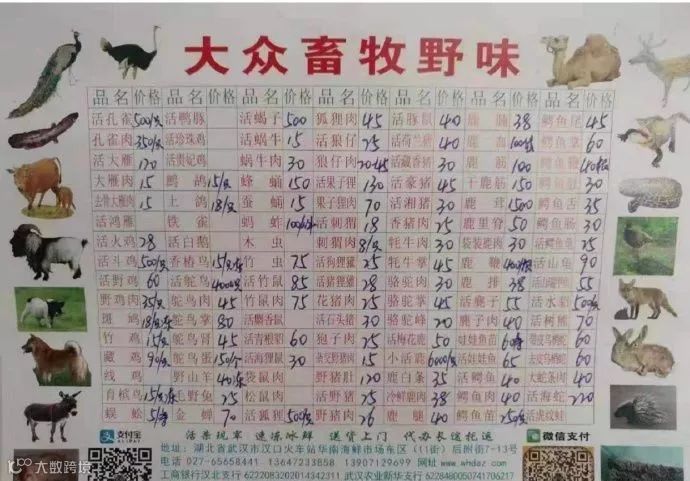 大众畜牧野味
品名 价格 品名 价格 品名 价格 品名 价格 品名 价格 品名 价格 品名 价格
活孔雀 500/只 活鸭豚 活蝎子 500 狐狸肉 45 活豚鼠 40 38 鳄鱼尾 45
孔雀肉 350/只 活珍珠鸡 活蜗牛 15 活狼仔 25 活荷兰猪 40 鳄鱼掌 60
活大雁 120 活贵妃鸡 蜗牛肉 30 狼仔肉 活藏香猪 30 鹿筋 100
大雁肉 15 鹧鸪 15/只 蜂蛹 150 活果子狸 130 活豪猪 45 干鹿筋 150 30
去骨大雁肉 15 土鸽 18/只 蚕蛹 15 果子狸肉 70 活湘猪 30 鹿茸 1500 鳄鱼舌 35
活鸿雁 铁雀 蚂蚱 活刺猬 18 香猪肉 25 鹿里脊 50 鳄鱼肠 30
活火鸡 28 活白鹅 木虫 刺猬肉 8/只 牦牛肉 30 袋鼠鹿肉 30 活鳄鱼龟 25
活斗鸡 500/只 香椿鸟 竹虫 75 活狗狸獾 25 牦牛掌 45 鹿鞭 活山龟 90
活野鸡 60 活鸵鸟 4000/只 活竹鼠 85 活猪狸獾 28 骆驼肉 45 鹿排 38 55
野鸡肉 35/只 鸵鸟肉 45 竹鼠肉 75 花猪肉 25 骆驼掌 45 活麂子 55 活水貂 500/只
斑鸠 鸵鸟掌 80 活麝香鼠 活石头猪 30 骆驼峰 20 麂子肉 40 活树熊 70
竹鸡 15/只 鸵鸟肾 45 活青根貂 60 狍子肉 25 活梅花鹿 50 活娃娃鱼 60
藏鸡 90/只 鸵鸟蛋 150/个 活海狸鼠 30 15 小活鹿 6000/只 活娃娃鱼 65 45
线鸡 野山羊 40 袋鼠肉 野猪肚 120 鹿白条 35 活鳄鱼 40 大蛇条肉 40
育槟鸟 毛野兔 25 松鼠肉 活野猪 25 冷鲜鹿肉 38 鳄鱼肉 40 活海蛇 220
蜈蚣 5/条 金蝉 70 活狐狸 500/只 野猪肉 26 鹿腿 40 鳄鱼苗 250/只 活虎纹蛙
支付宝
活杀现宰 速冻冰鲜 送货上门 代办长途托运
微信支付
地址:湖北省武汉市汉口火车站华南海鲜市场东区(1街)后附街7-13号
电话:027-65658441 13647233858 13907129699 网址:www.whdaz.com
工商银行汉北支行 6222083202014342311 武汉农业银行汉北支行 6228480050741706217
大数跨境